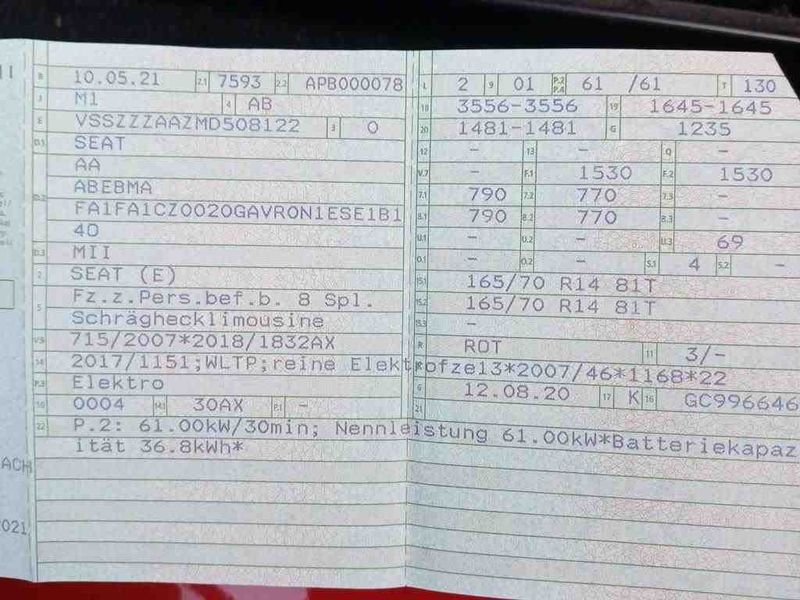 B 10.05.21 2.1 7593 2.2 APB000078
J M1 4 AB
E VSSZZZAAZMD508122 3 0
D.1 SEAT
AA
D.2 ABEBMA
FA1FA1CZ0020GAVR0N1ESE1B1
40
D.3 MII
2 SEAT (E)
5 Fz.z.Pers.bef.b. 8 Spl.
Schräghecklimousine
V.9 715/2007*2018/1832AX
14 2017/1151;WLTP;reine Elektrofze
P.3 Elektro
10 0004 14.1 30AX P.1 -
22 P.2: 61.00kW/30min; Nennleistung 61.00kW*Batteriekapaz
ität 36.8kWh*
L 2 9 01 P.2 P.4 61 /61 T 130
18 3556-3556 19 1645-1645
20 1481-1481 G 1235
12 - 13 - Q -
V.7 - F.1 1530 F.2 1530
7.1 790 7.2 770 7.3 -
8.1 790 8.2 770 8.3 -
U.1 - U.2 - U.3 69
O.1 - O.2 - S.1 4 S.2 -
15.1 165/70 R14 81T
15.2 165/70 R14 81T
15.3 -
R ROT 11 3/-
K e13*2007/46*1168*22
6 12.08.20 17 K 16 GC996646
21
ACH
2021